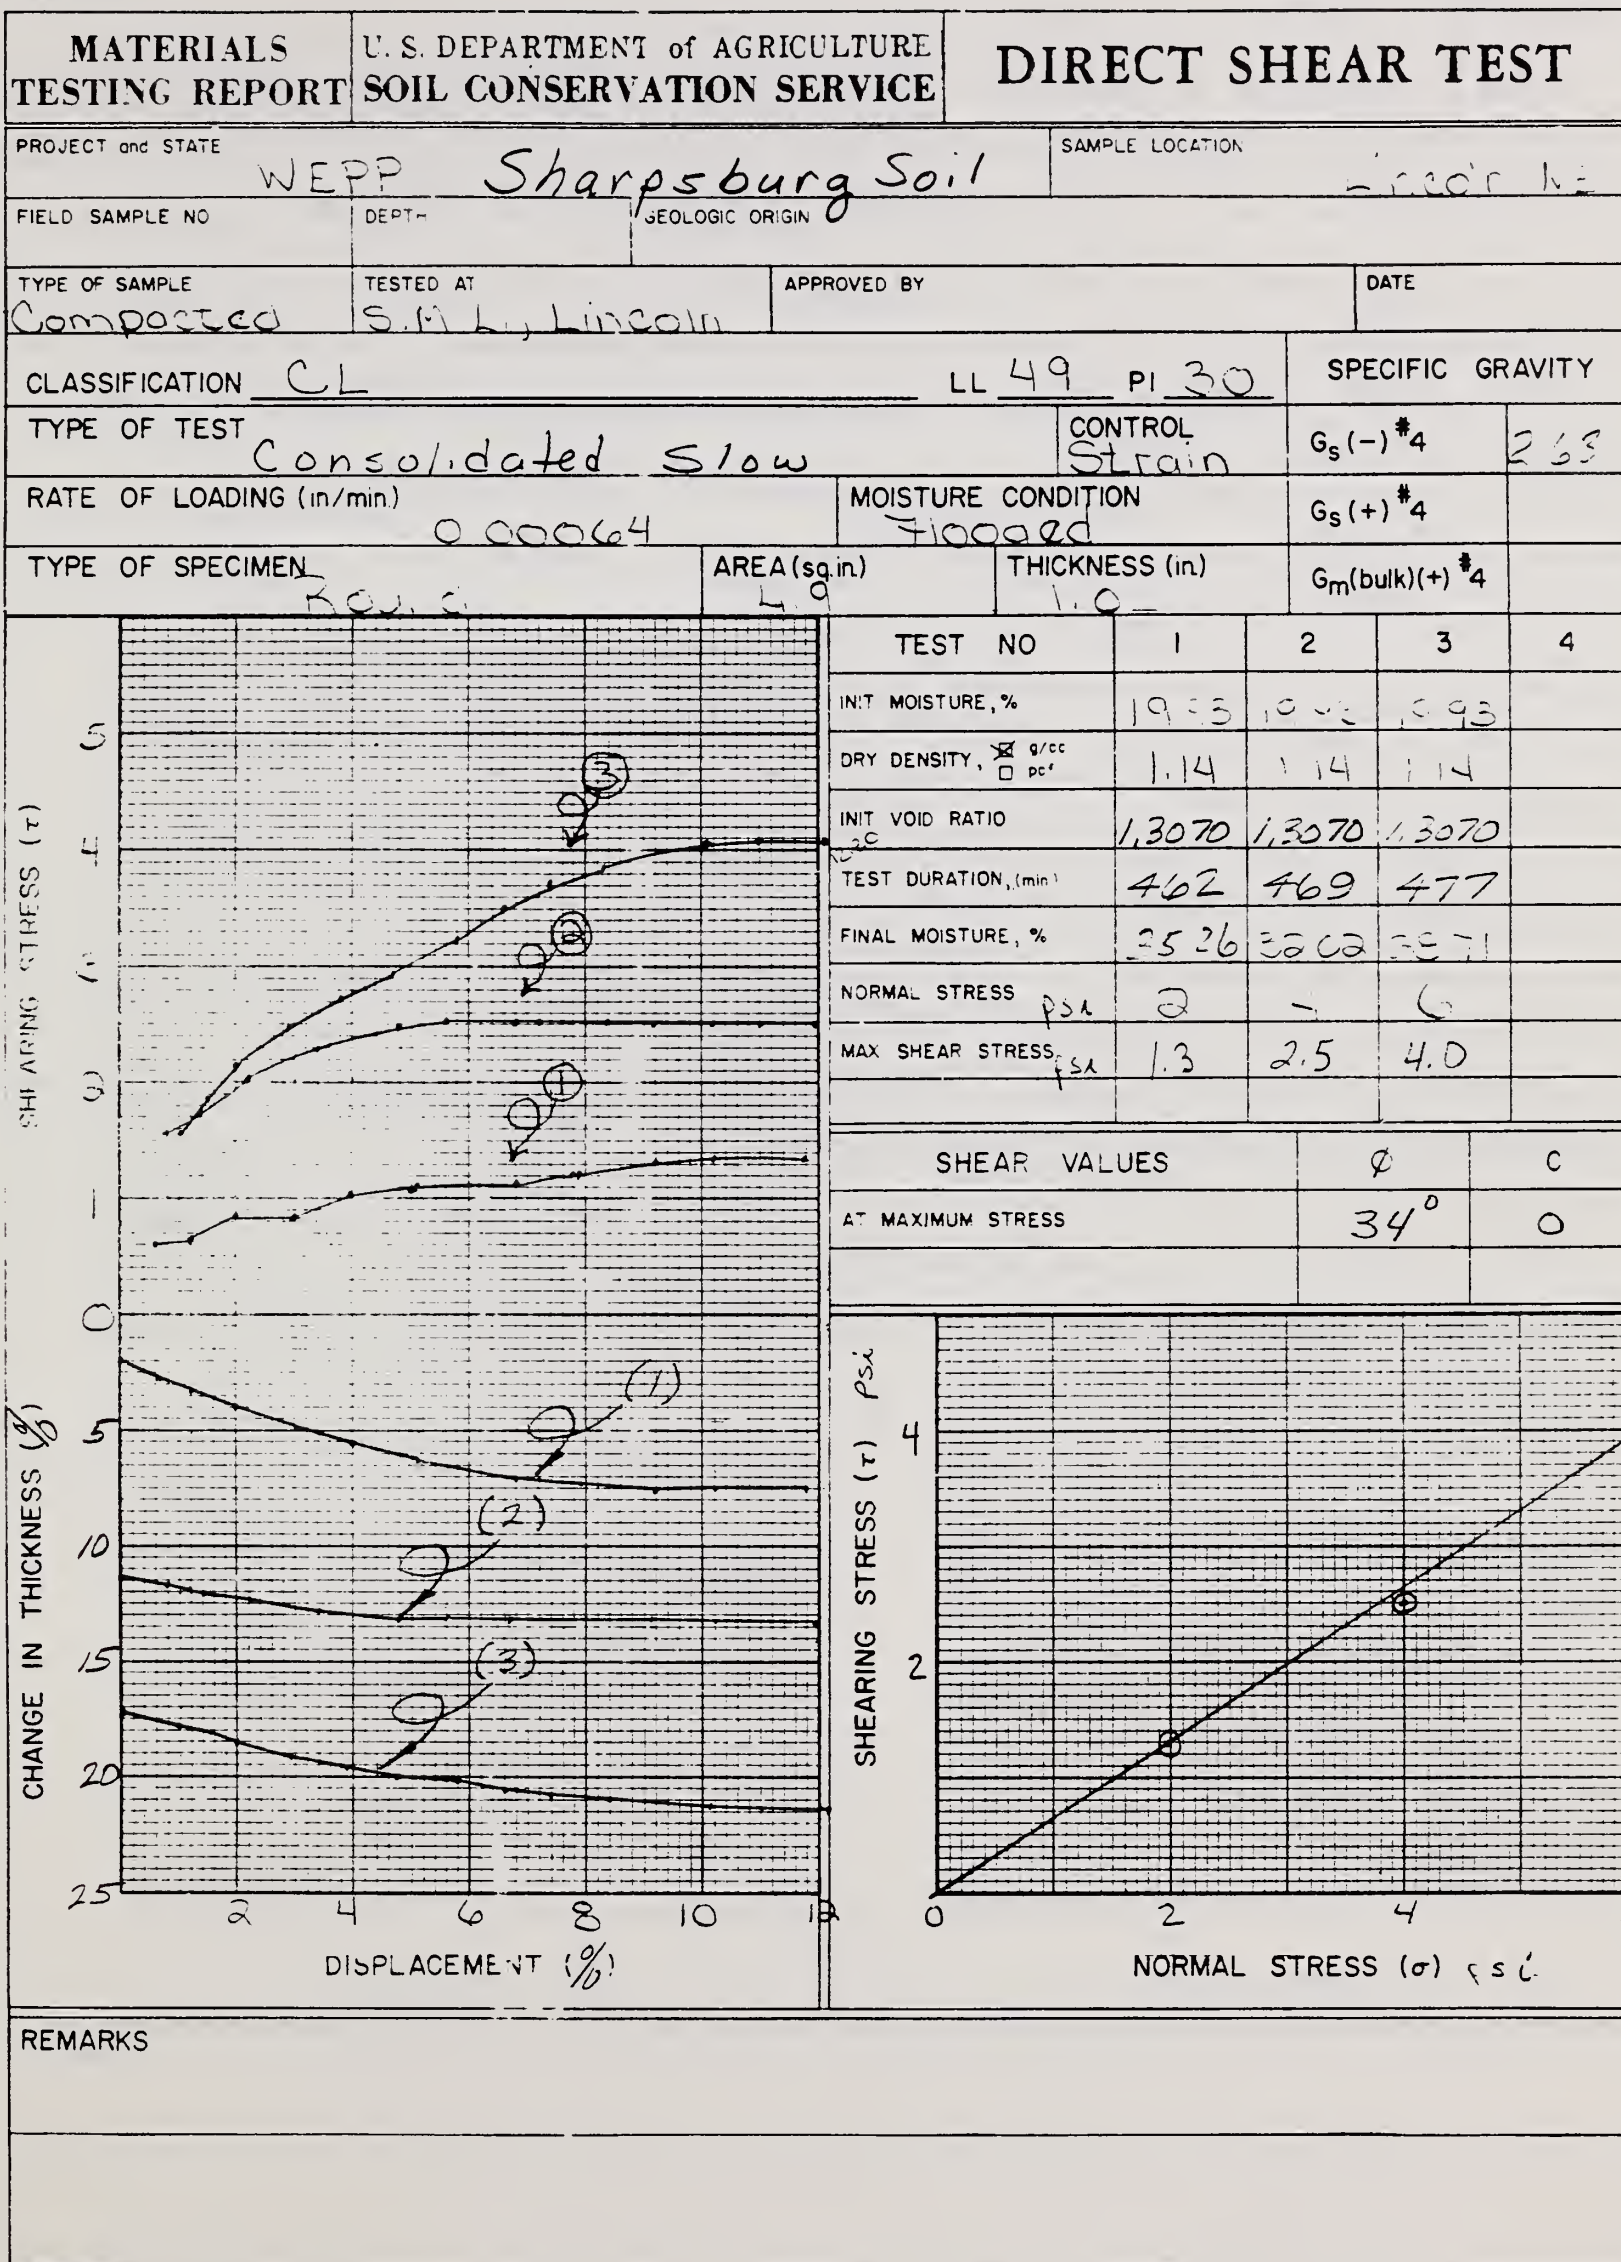 MATERIALS
TESTING REPORT
U. S. DEPARTMENT of AGRICULTURE
SOIL CONSERVATION SERVICE
DIRECT SHEAR TEST
PROJECT and STATE
WEPP Sharpsburg Soil
SAMPLE LOCATION
FIELD SAMPLE NO
DEPTH
GEOLOGIC ORIGIN
TYPE OF SAMPLE
Compacted
TESTED AT
S.M.L., Lincoln
APPROVED BY
DATE
CLASSIFICATION CL LL 49 PI 30
SPECIFIC GRAVITY
TYPE OF TEST
Consolidated Slow
CONTROL
Strain
Gs (-) #4
RATE OF LOADING (in/min.)
0.00064
MOISTURE CONDITION
Flooded
Gs (+) #4
TYPE OF SPECIMEN
AREA (sq.in.)
4.9
THICKNESS (in.)
1.0
Gm(bulk)(+) #4
TEST NO 1 2 3 4
INIT MOISTURE, %
DRY DENSITY, ☒ g/cc ☐ pcf 1.14 1.14 1.14
INIT VOID RATIO 1.3070 1.3070 1.3070
TEST DURATION, (min) 462 469 477
FINAL MOISTURE, %
NORMAL STRESS psi 2 6
MAX SHEAR STRESS psi 1.3 2.5 4.0
SHEAR VALUES Ø C
AT MAXIMUM STRESS 34° 0
SHEARING STRESS (τ)
5
4
2
1
0
(3)
(2)
(1)
CHANGE IN THICKNESS (%)
5
10
15
20
25
(1)
(2)
(3)
2 4 6 8 10 12
DISPLACEMENT (%)
SHEARING STRESS (τ) psi
4
2
0 2 4
NORMAL STRESS (σ) psi
REMARKS